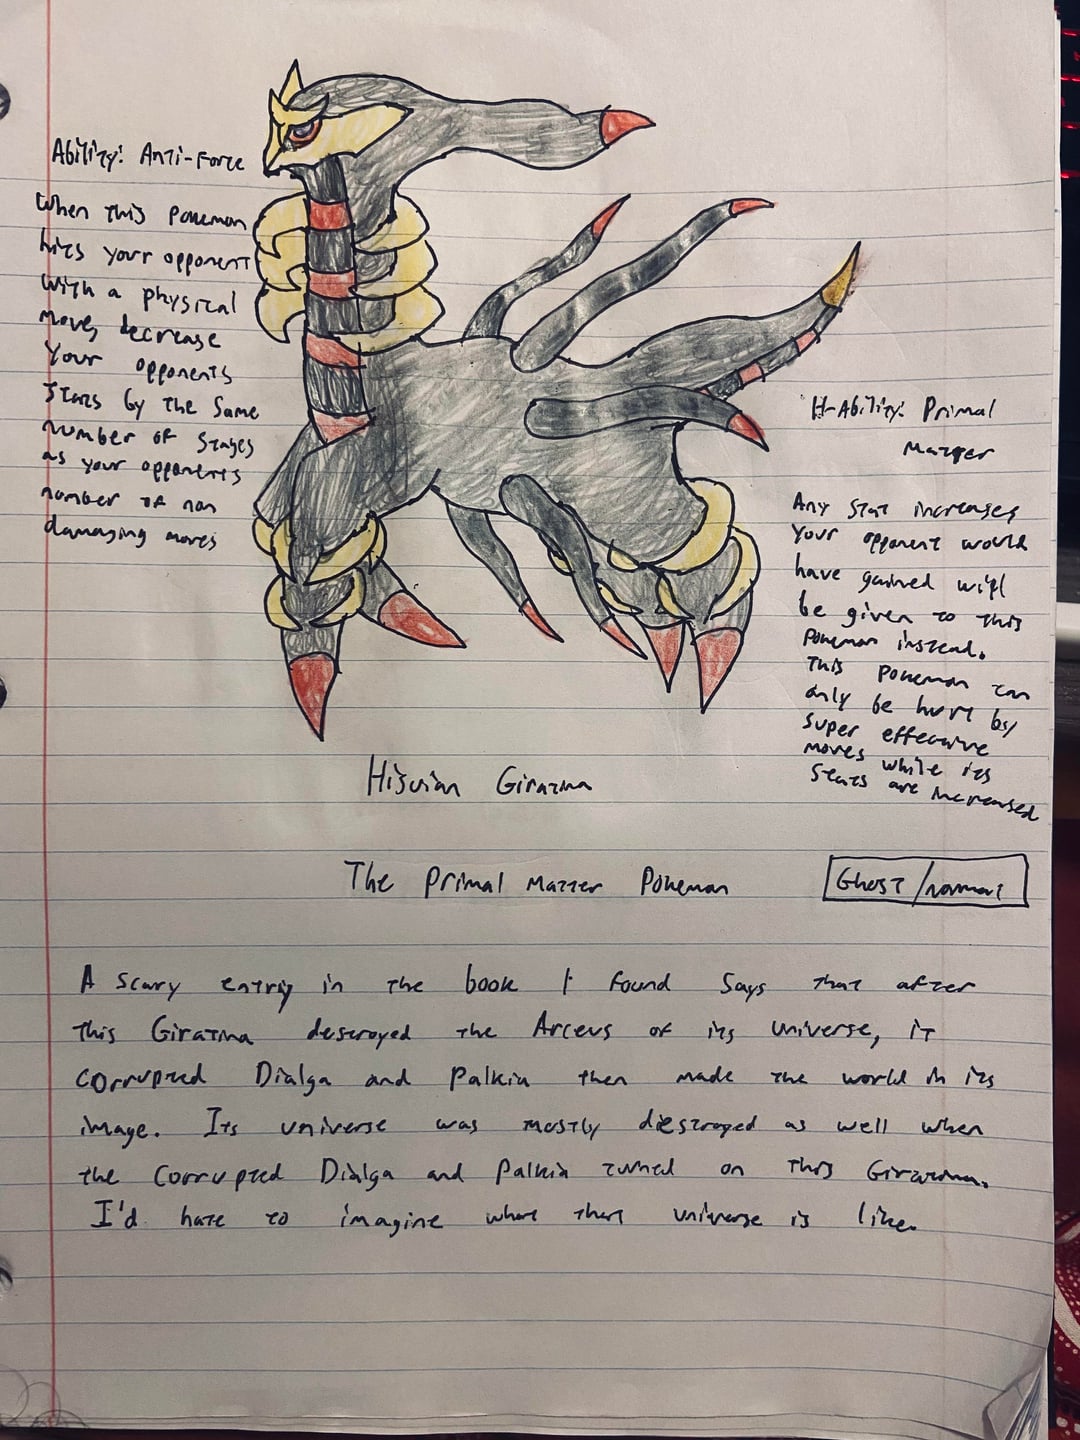 Ability: Anti-Force
When this Pokemon
hits your opponent
with a physical
move, decrease
your opponents
stats by the same
number of stages
as your opponents
number of non
damaging moves
H-Ability: Primal
Matter
Any stat increases
your opponent would
have gained will
be given to this
Pokemon instead.
This Pokemon can
only be hurt by
super effective
moves while its
stats are increased
Hisuian Giratina
The Primal Matter Pokemon
Ghost/normal
A scary entry in the book I found says that after
this Giratina destroyed the Arceus of its universe, it
corrupted Dialga and Palkia then made the world in its
image. Its universe was mostly destroyed as well when
the corrupted Dialga and Palkia turned on this Giratina.
I'd hate to imagine what that universe is like.